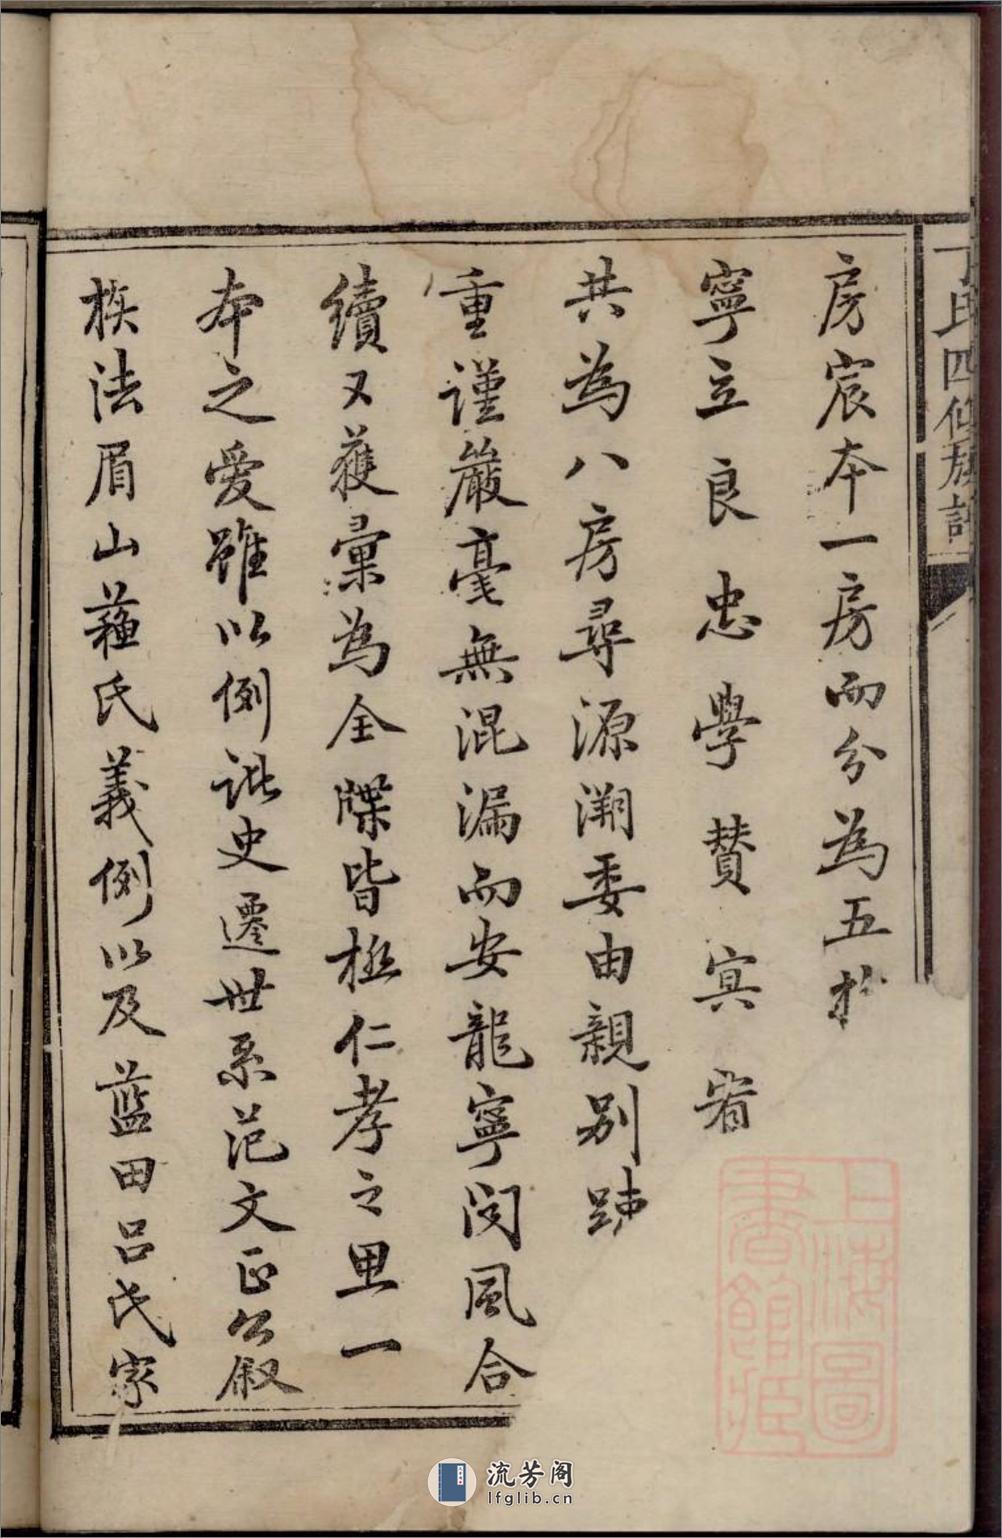 丁氏四修族譜
房宸本一房而分為五
寧立良忠學賛㝠
共為八房尋源溯委由親別踈
重謹嚴毫無混漏而安龍寧閔風合
續又蒦彚為全牒皆極仁孝之思一
夲之愛雖以例訛史遷世系范文正公叙
族法眉山蘓氏義例以及藍田吕氏家
上海圖書館藏
流芳阁
lfglib.cn